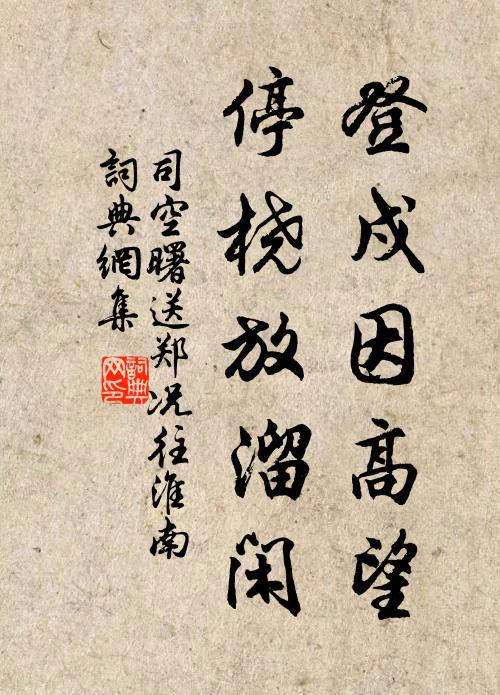 登戍因高望
停桡放溜闲
司空曙送郑况往淮南
詞典網集
詞典网印